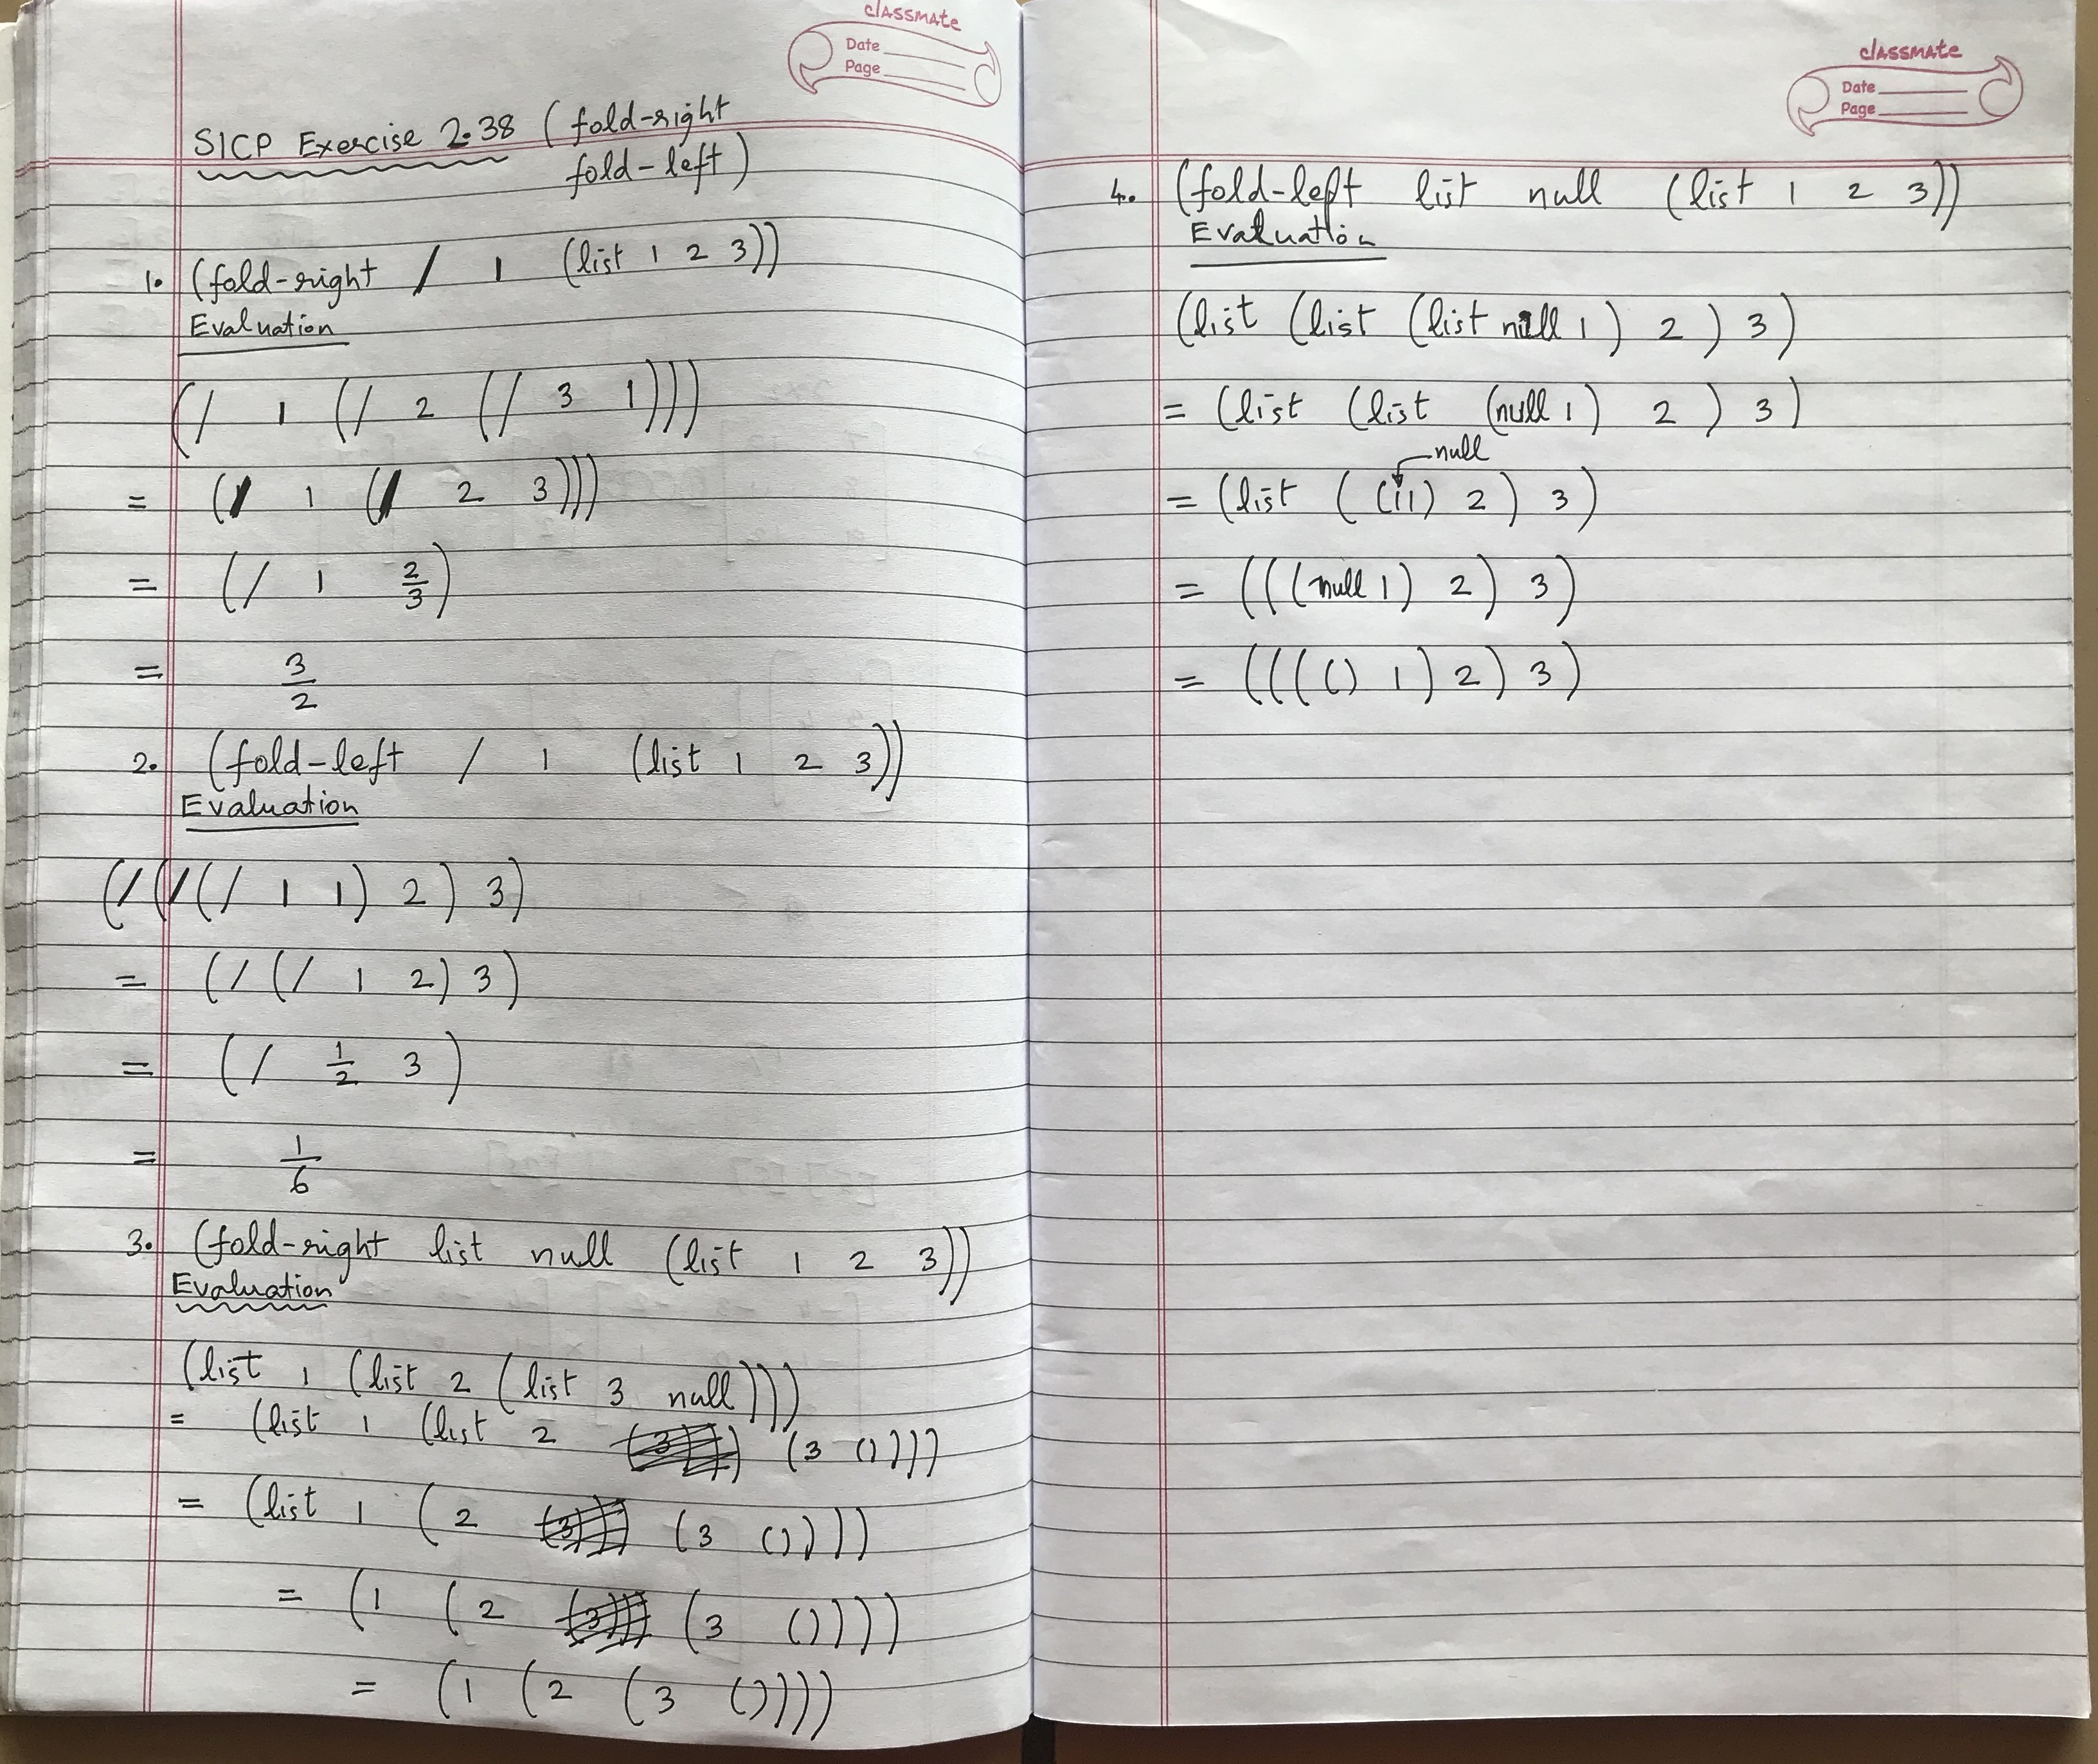 classmate
Date
Page
SICP Exercise 2.38 (fold-right
fold-left)
1. (fold-right / 1 (list 1 2 3))
Evaluation
(/ 1 (/ 2 (/ 3 1)))
= (/ 1 (/ 2 3)))
= (/ 1 2/3)
= 3/2
2. (fold-left / 1 (list 1 2 3))
Evaluation
(/(/(/ 1 1) 2) 3)
= (/(/ 1 2) 3)
= (/ 1/2 3)
= 1/6
3. (fold-right list null (list 1 2 3))
Evaluation
(list 1 (list 2 (list 3 null)))
= (list 1 (list 2 (3 ())))
= (list 1 (2 (3 ())))
= (1 (2 (3 ())))
= (1 (2 (3 ())))
classmate
Date
Page
4. (fold-left list null (list 1 2 3))
Evaluation
(list (list (list null 1) 2) 3)
= (list (list (null 1) 2) 3)
null
= (list ( ( 1) 2) 3)
= (((null 1) 2) 3)
= (((() 1) 2) 3)